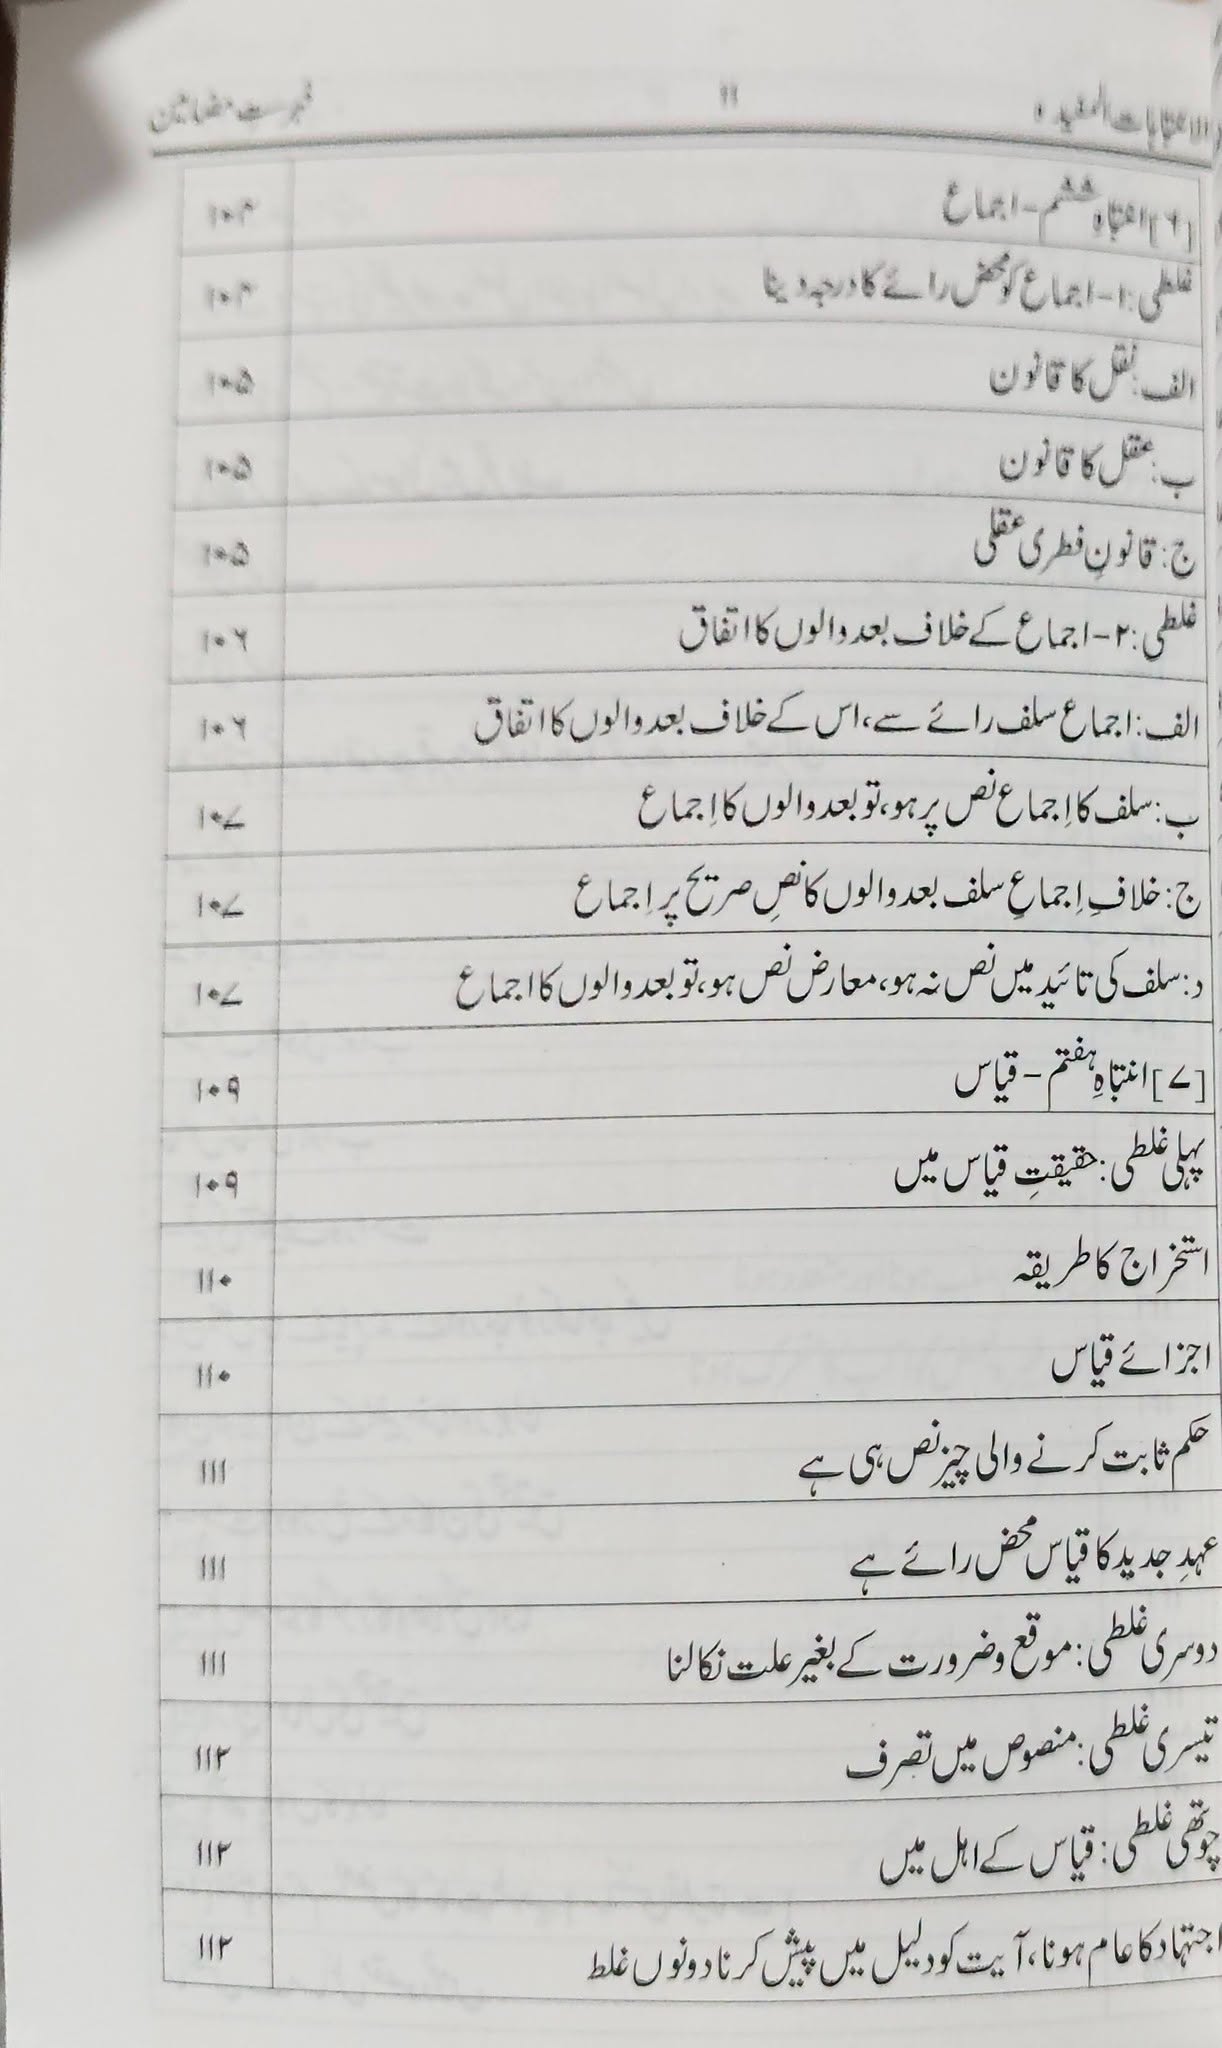 الانتباہات المفیدہ ۱۱ فہرست مضامین
[۶] انتباہ ششم – اجماع ۱۰۴
غلطی: ۱– اجماع کو محض رائے کا درجہ دینا ۱۰۴
الف: نقل کا قانون ۱۰۵
ب: عقل کا قانون ۱۰۵
ج: قانونِ فطری عقلی ۱۰۵
غلطی: ۲– اجماع کے خلاف بعد والوں کا اتفاق ۱۰۶
الف: اجماع سلف رائے سے، اس کے خلاف بعد والوں کا اتفاق ۱۰۶
ب: سلف کا اِجماع نص پر ہو، تو بعد والوں کا اِجماع ۱۰۷
ج: خلافِ اِجماعِ سلف بعد والوں کا نصِ صریح پر اِجماع ۱۰۷
د: سلف کی تائید میں نص نہ ہو، معارض نص ہو، تو بعد والوں کا اجماع ۱۰۷
[۷] انتباہِ ہفتم – قیاس ۱۰۹
پہلی غلطی: حقیقتِ قیاس میں ۱۰۹
استخراج کا طریقہ ۱۱۰
اجزائے قیاس ۱۱۰
حکم ثابت کرنے والی چیز نص ہی ہے ۱۱۱
عہدِ جدید کا قیاس محض رائے ہے ۱۱۱
دوسری غلطی: موقع و ضرورت کے بغیر علت نکالنا ۱۱۱
تیسری غلطی: منصوص میں تصرف ۱۱۲
چوتھی غلطی: قیاس کے اہل میں ۱۱۲
اجتہاد کا عام ہونا، آیت کو دلیل میں پیش کرنا دونوں غلط ۱۱۲